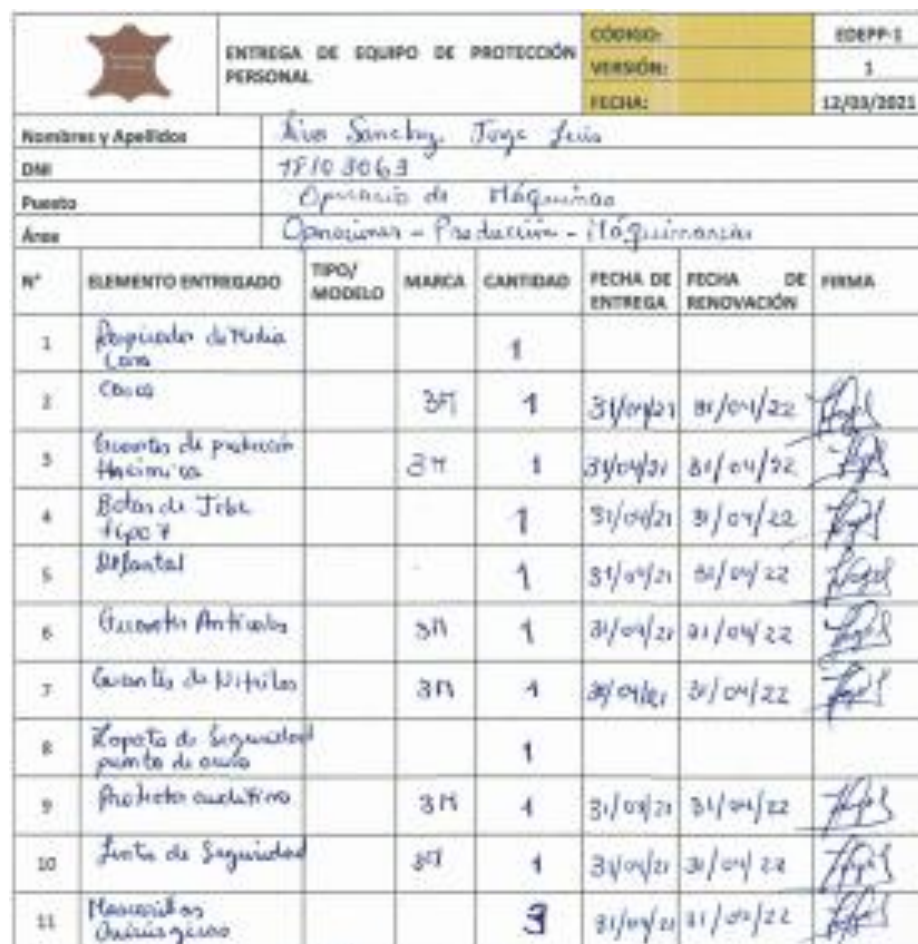 ENTREGA DE EQUIPO DE PROTECCIÓN
PERSONAL
CÓDIGO: EDEPP-1
VERSIÓN: 1
FECHA: 12/03/2021
Nombres y Apellidos Sánchez, Jorge Luis
DNI 18103063
Puesto Operario de Máquinas
Área Operaciones - Producción - Máquinarias
N° ELEMENTO ENTREGADO TIPO/ MODELO MARCA CANTIDAD FECHA DE ENTREGA FECHA DE RENOVACIÓN FIRMA
1 Respirador de Media
Cara 1
2 Casco 3M 1 31/04/21 31/04/22
3 Guantes de protección
3M 1 31/04/21 31/04/22
4 Botas de Jebe
tipo 1 31/04/21 31/04/22
5 1 31/04/21 31/04/22
6 Guantes 3M 1 31/04/21 31/04/22
7 Guantes de Nitrilos 3M 1 31/04/22
8 Zapato de Seguridad
punta de 1
9 auditivo 3M 1 31/04/22
10 de Seguridad 3M 1 31/04/21 31/04/22
11 Mascarillas
Quirúrgicas 3 31/04/22